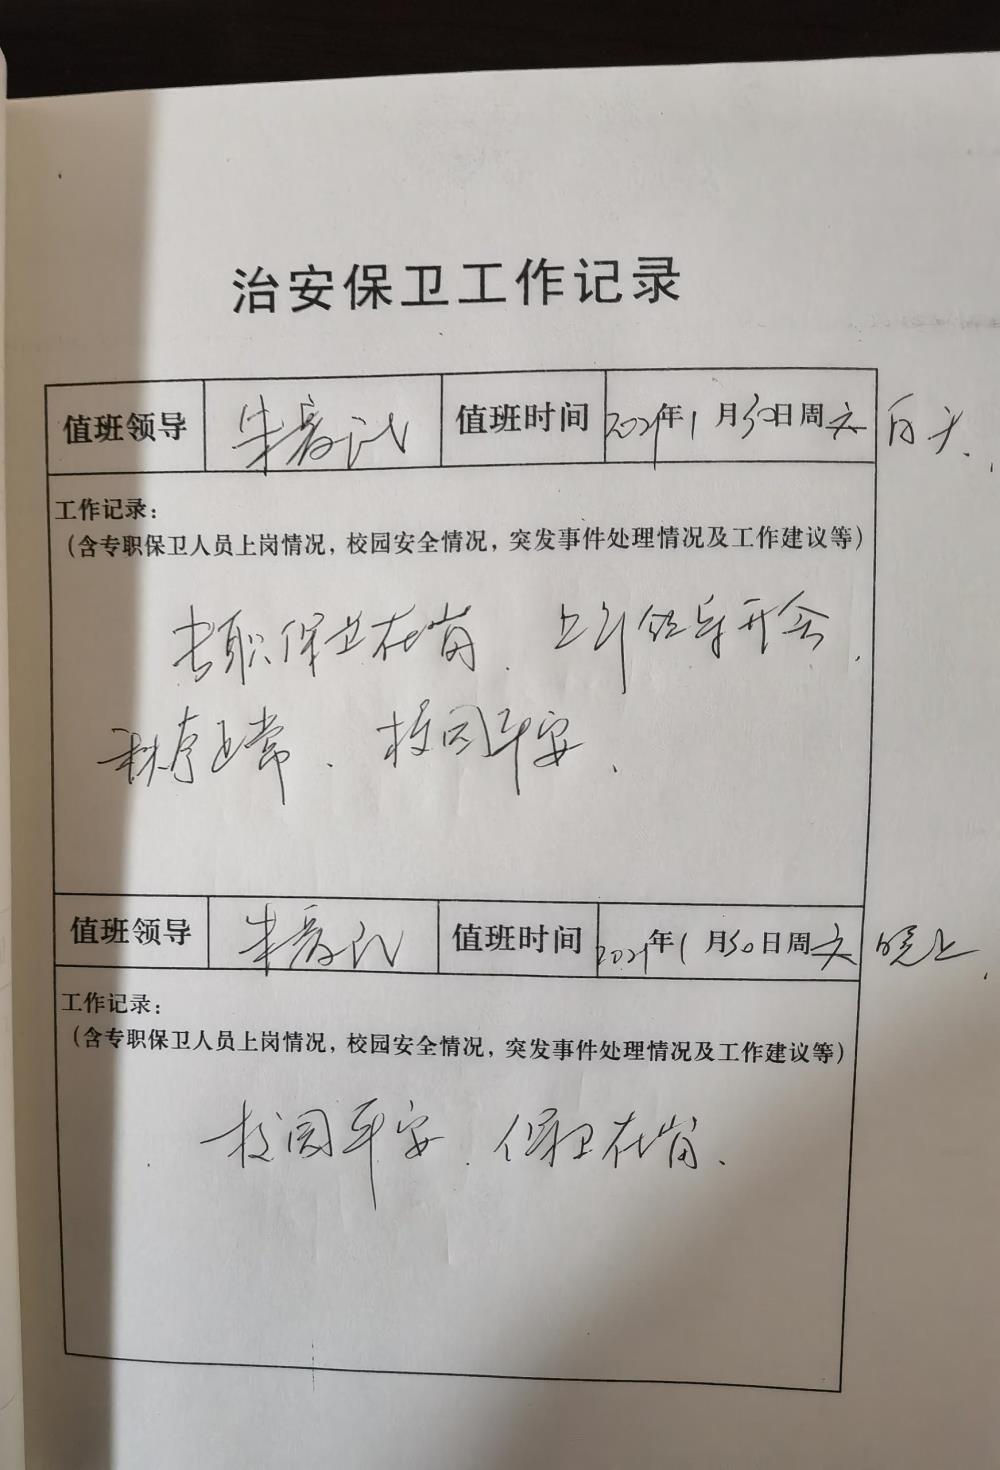 治安保卫工作记录
值班领导 朱 值班时间 2021年1月30日周六 白天.
工作记录：
（含专职保卫人员上岗情况，校园安全情况，突发事件处理情况及工作建议等）
专职保卫在岗. 上午领导开会.
秩序正常. 校园平安.
值班领导 朱 值班时间 2021年1月30日周六 晚上.
工作记录：
（含专职保卫人员上岗情况，校园安全情况，突发事件处理情况及工作建议等）
校园平安. 保卫在岗.